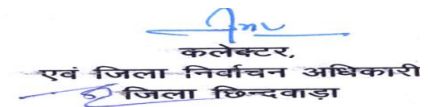 कलेक्टर,
एवं जिला निर्वाचन अधिकारी
जिला छिन्दवाड़ा